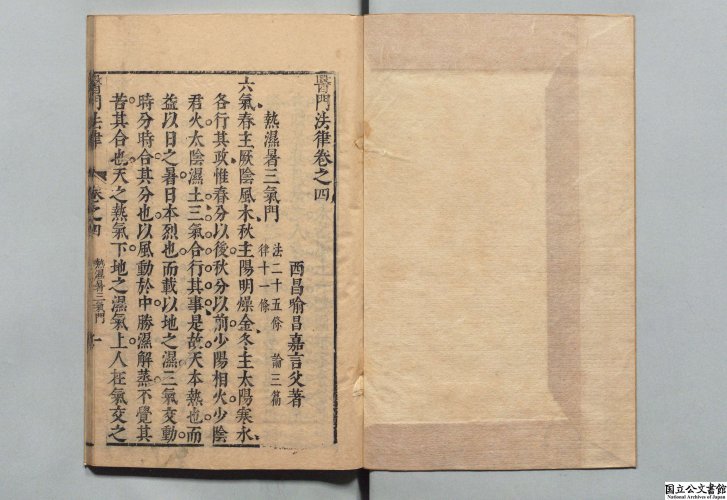 醫門法律卷之四
西昌喻昌嘉言父著
熱濕暑三氣門
法二十五條 論三篇
律十一條
六氣春主厥陰風木秋主陽明燥金冬主太陽寒水
各行其政惟春分以後秋分以前少陽相火少陰
君火太陰濕土三氣合行其事是故天本熱也而
益以日之暑日本烈也而載以地之濕三氣交動
時分時合其分也以風動於中勝濕解蒸不覺其
苦其合也天之熱氣下地之濕氣上人在氣交之
醫門法律
卷之四
熱濕暑三氣門
一
国立公文書館
National Archives of Japan